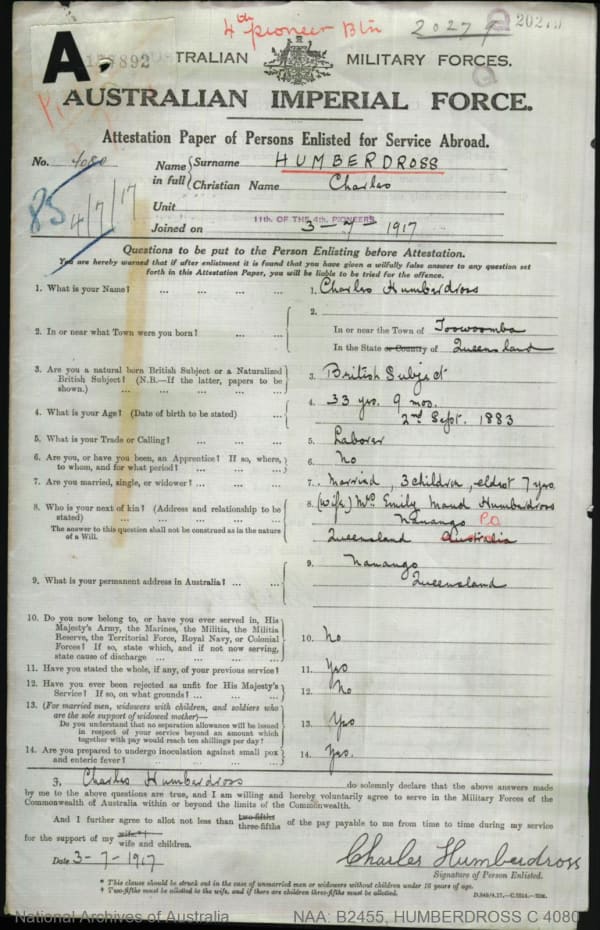 4th Pioneer Btn
20279
A.
TRALIAN MILITARY FORCES.
AUSTRALIAN IMPERIAL FORCE.
Attestation Paper of Persons Enlisted for Service Abroad.
No. 4080 Name in full { Surname HUMBERDROSS
Christian Name Charles
85 4/7/17
Unit
11th OF THE 4th. PIONEERS
Joined on 3-7-1917
Questions to be put to the Person Enlisting before Attestation.
You are hereby warned that if after enlistment it is found that you have given a wilfully false answer to any question set
forth in this Attestation Paper, you will be liable to be tried for the offence.
1. What is your Name? ... ... ... ... 1. Charles Humberdross
2. In or near what Town were you born? ... ... 2.
In or near the Town of Toowoomba
In the State or Country of Queensland
3. Are you a natural born British Subject or a Naturalized
British Subject? (N.B.—If the latter, papers to be
shown.) ... ... ... ... 3. British Subject
4. What is your Age? (Date of birth to be stated) ... 4. 33 yrs. 9 mos.
2nd Sept. 1883
5. What is your Trade or Calling? ... ... ... 5. Laborer
6. Are you, or have you been, an Apprentice? If so, where,
to whom, and for what period? ... ... ... 6. No
7. Are you married, single, or widower? ... ... ... 7. Married, 3 children, eldest 7 yrs.
8. Who is your next of kin? (Address and relationship to be
stated) ... ... ... ... ...
The answer to this question shall not be construed as in the nature
of a Will.
8. (Wife) Mrs Emily Maud Humberdross
Nanango P.O.
Queensland Australia
9. What is your permanent address in Australia? ... ... 9. Nanango
Queensland
10. Do you now belong to, or have you ever served in, His
Majesty's Army, the Marines, the Militia, the Militia
Reserve, the Territorial Force, Royal Navy, or Colonial
Forces? If so, state which, and if not now serving,
state cause of discharge ... ... ... ... 10. No
11. Have you stated the whole, if any, of your previous service? 11. Yes
12. Have you ever been rejected as unfit for His Majesty's
Service? If so, on what grounds? ... ... ... 12. No
13. (For married men, widowers with children, and soldiers who
are the sole support of widowed mother)—
Do you understand that no separation allowance will be issued
in respect of your service beyond an amount which
together with pay would reach ten shillings per day? 13. Yes
14. Are you prepared to undergo inoculation against small pox
and enteric fever? ... ... ... ... 14. Yes.
I, Charles Humberdross do solemnly declare that the above answers made
by me to the above questions are true, and I am willing and hereby voluntarily agree to serve in the Military Forces of the
Commonwealth of Australia within or beyond the limits of the Commonwealth.
And I further agree to allot not less than two-fifths three-fifths of the pay payable to me from time to time during my service
for the support of my wife*† wife and children.
Date 3-7-1917
Charles Humberdross
Signature of Person Enlisted.
* This clause should be struck out in the case of unmarried men or widowers without children under 16 years of age.
† Two-fifths must be allotted to the wife, and if there are children three-fifths must be allotted.
National Archives of Australia NAA: B2455, HUMBERDROSS C 4080